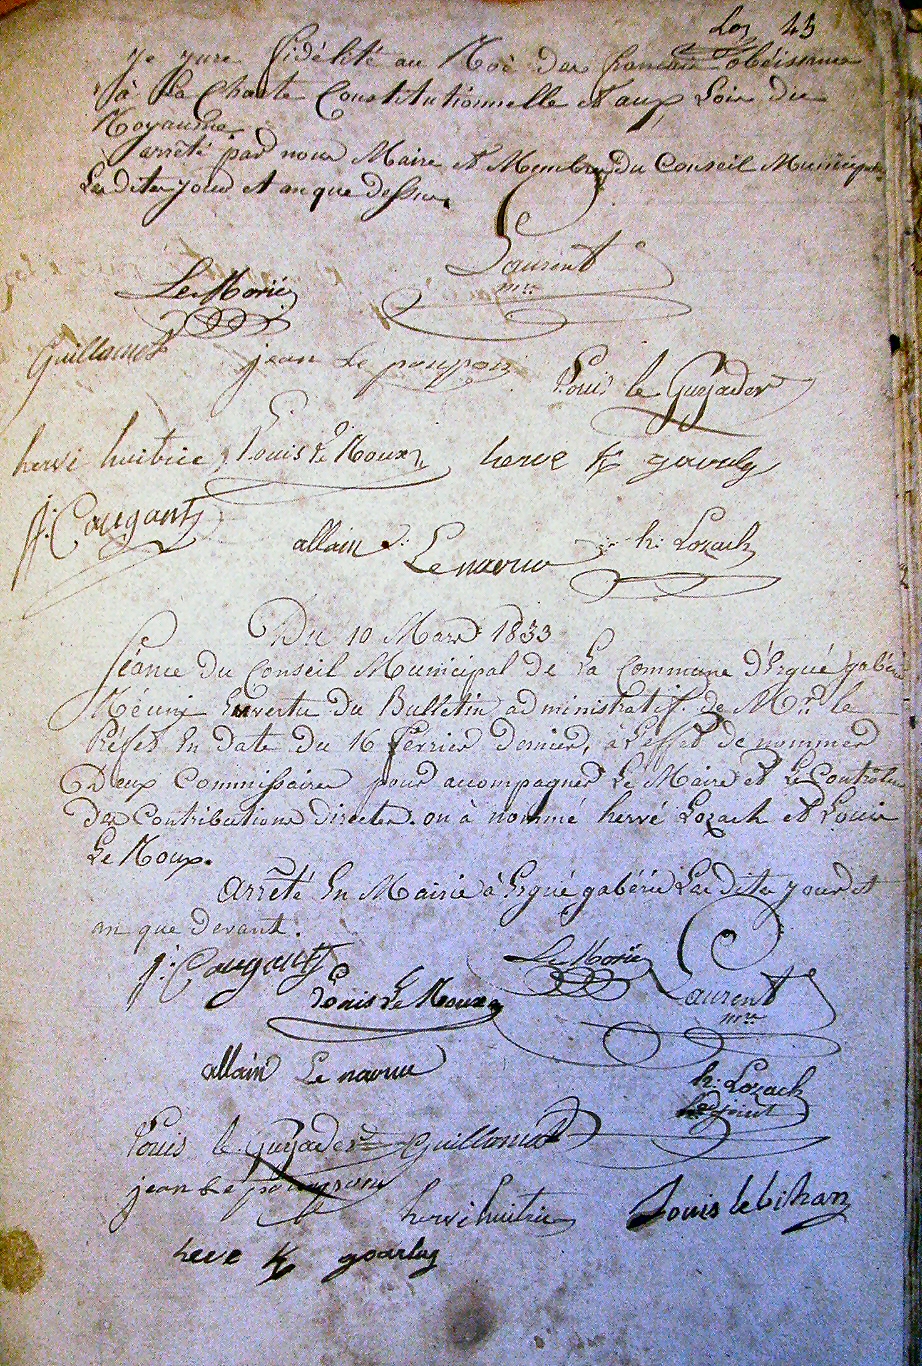 43
je jure fidélité au Roi des francais obéissance
à la Charte Constitutionnelle et aux Lois du
Royaume.
arrêté par nous Maire et Membres du Conseil Municipal
Les dits jour et an que dessus.
Laurent
mre
Le Morié
Guillamet
jean Le poupon
Louis le Guéjader
hervi huitric Louis Le Roux herve
J: Caugant
allain Le naour h: Lozach
Du 10 Mars 1833
Séance du Conseil Municipal de La Commune d'Ergué gabéric
Réuni En vertu du Bulletin administratif de Mr. le
Préfet En date du 16 février dernier, à L'effet de nommer
Deux Commissaires pour accompagner Le Maire et Le Controleur
Des Contributions directes. on à nommé hervé Lozach et Louis
Le Roux.
arrêté En Mairie à Ergué gabéric Les dits jour et
an que devant.
j: Caugant Le Morié
Louis Le Roux Laurent
mre
allain Le naour
h: Lozach
adjoint
Louis le Guéjader Guillamet
jean Le poupon
hervi huitric Louis le bihan
herve